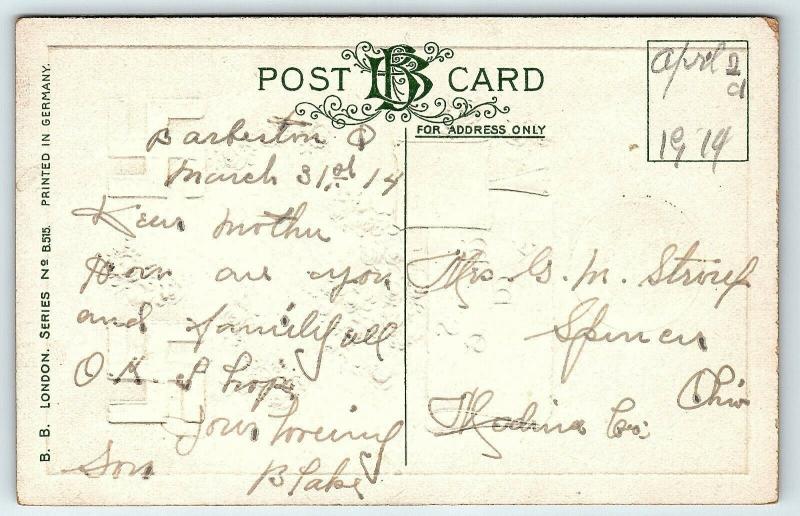 B. B. LONDON. SERIES Nº B.515. PRINTED IN GERMANY.
POST BB CARD
FOR ADDRESS ONLY
April 2d
1914
Barberton O
March 31st 14
Dear Mother
How are you
and family all
O.K. I hope
Your loveing
Son Blake
Mrs. G. M. Stroup
Spencer
Ohio
Medina Co.